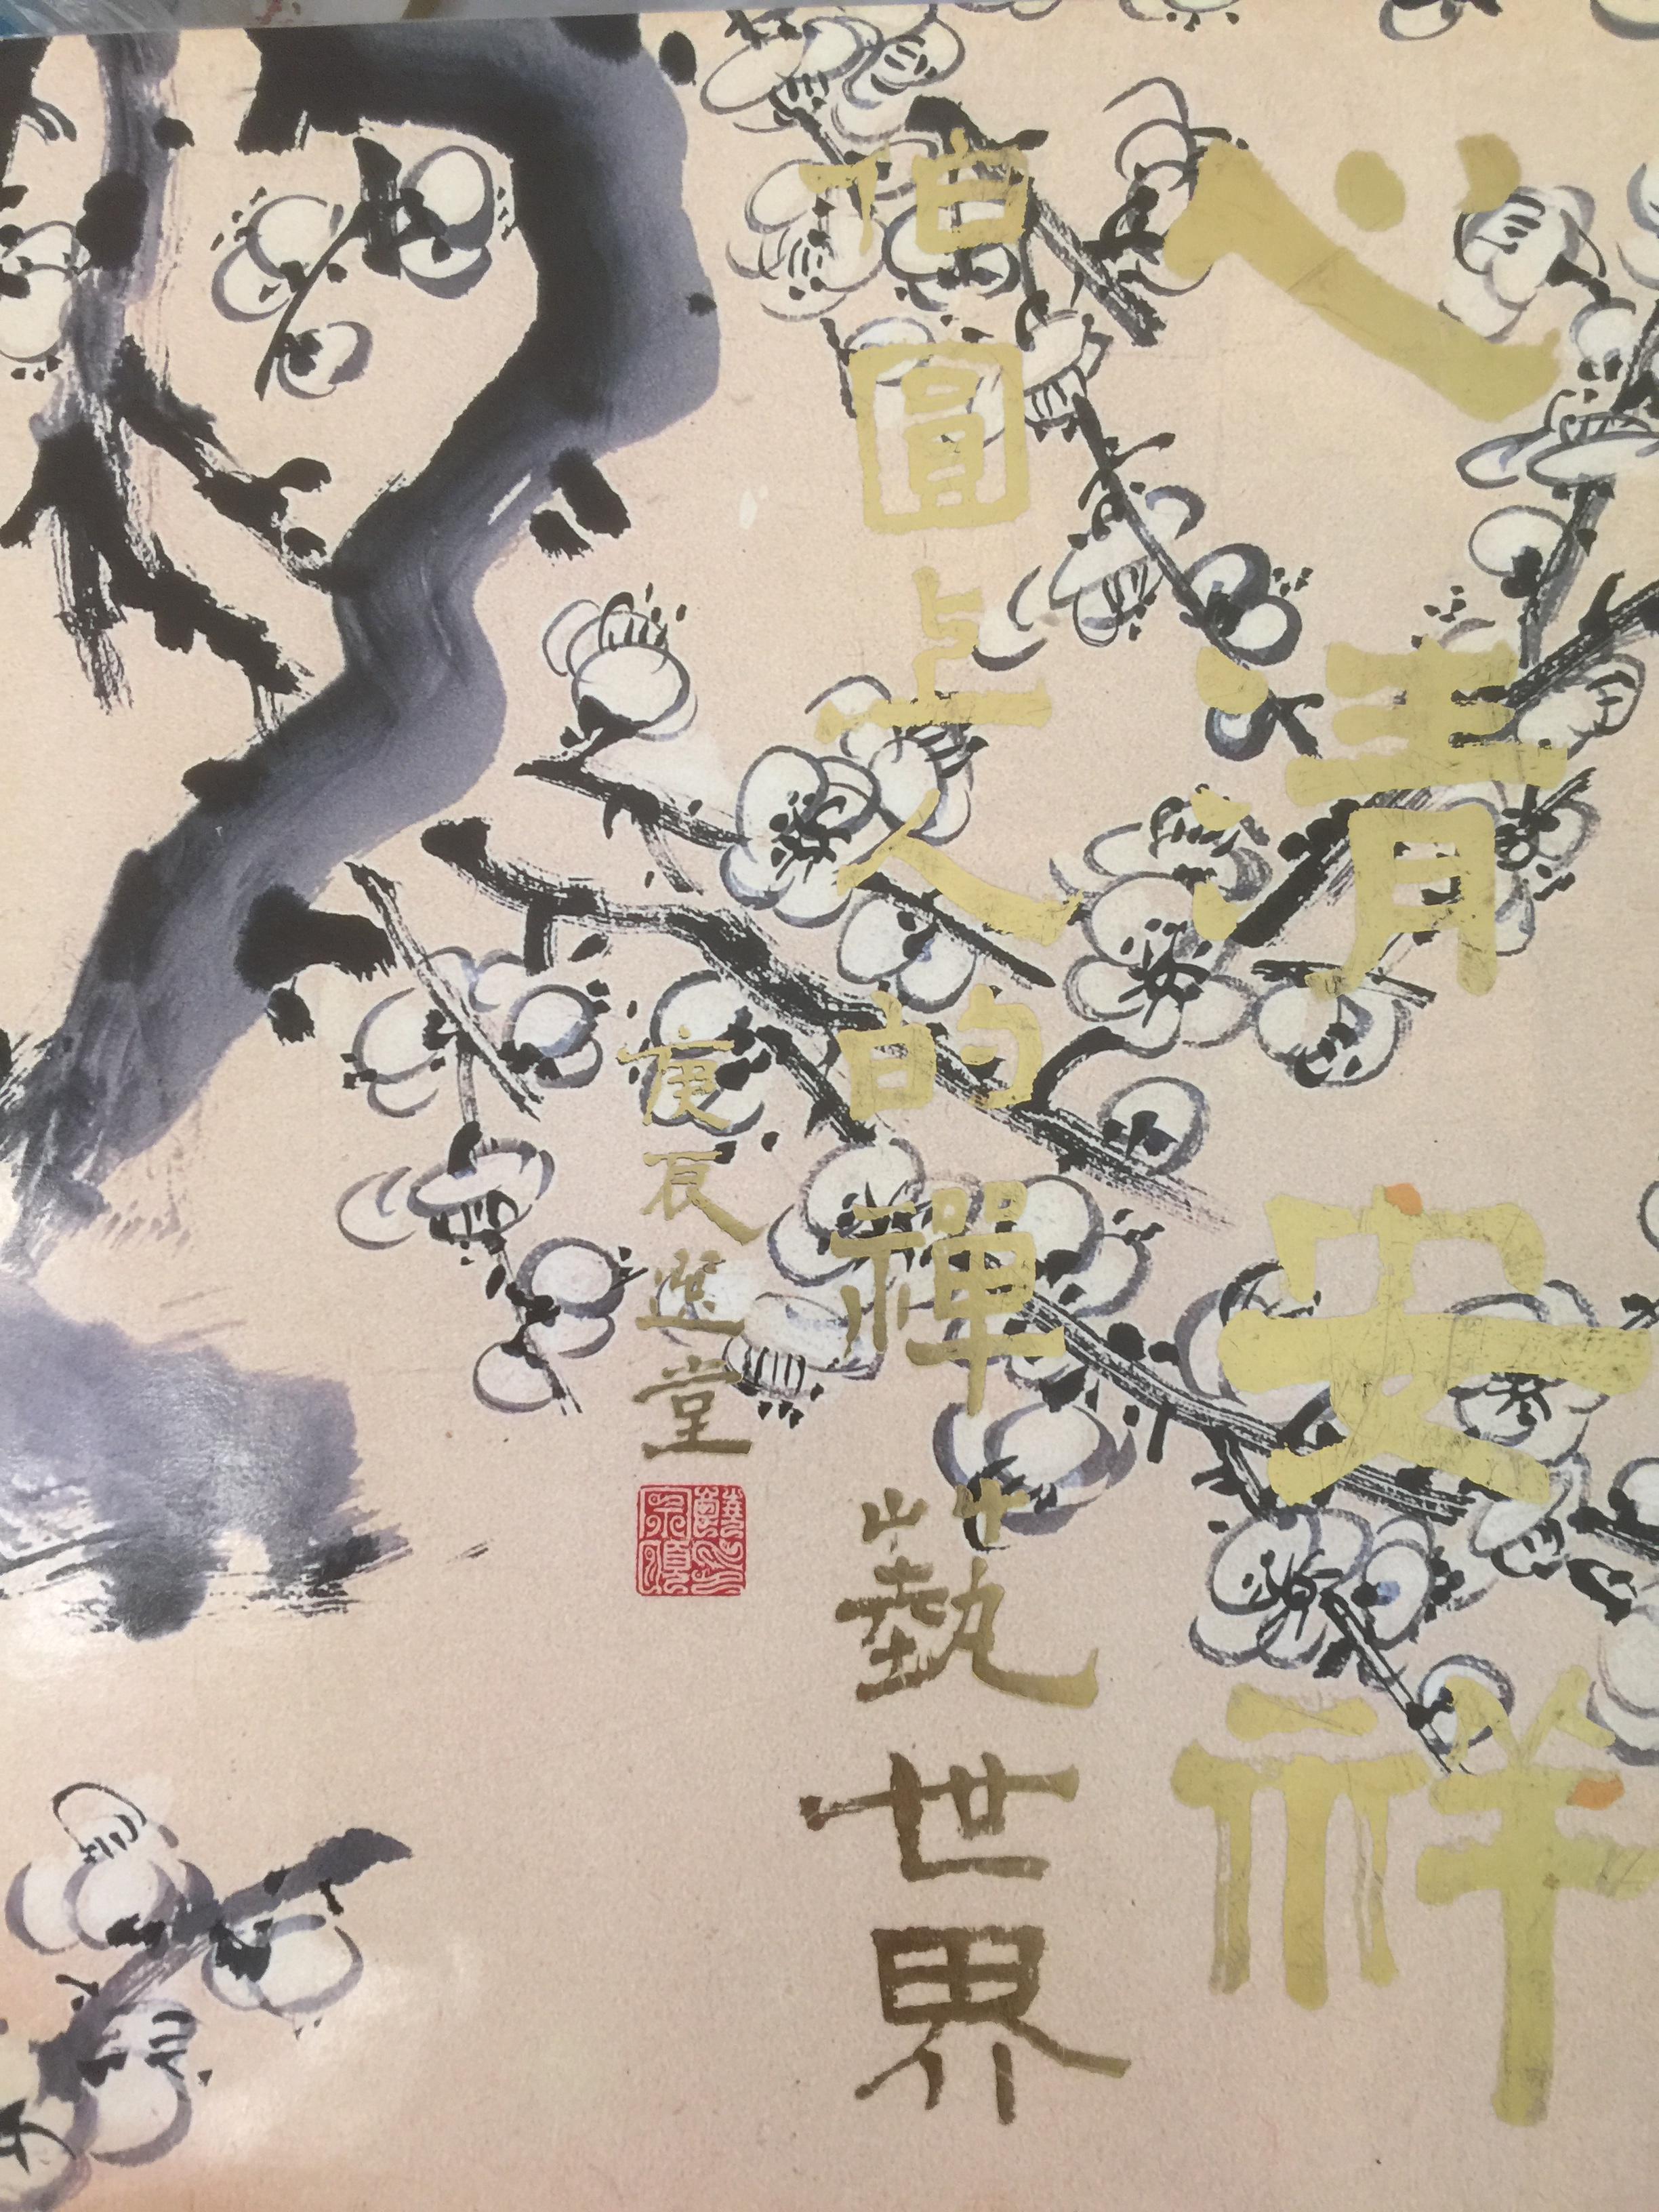 心清安祥
伯圓上人的禪藝世界
庚辰選堂
饒宗頤